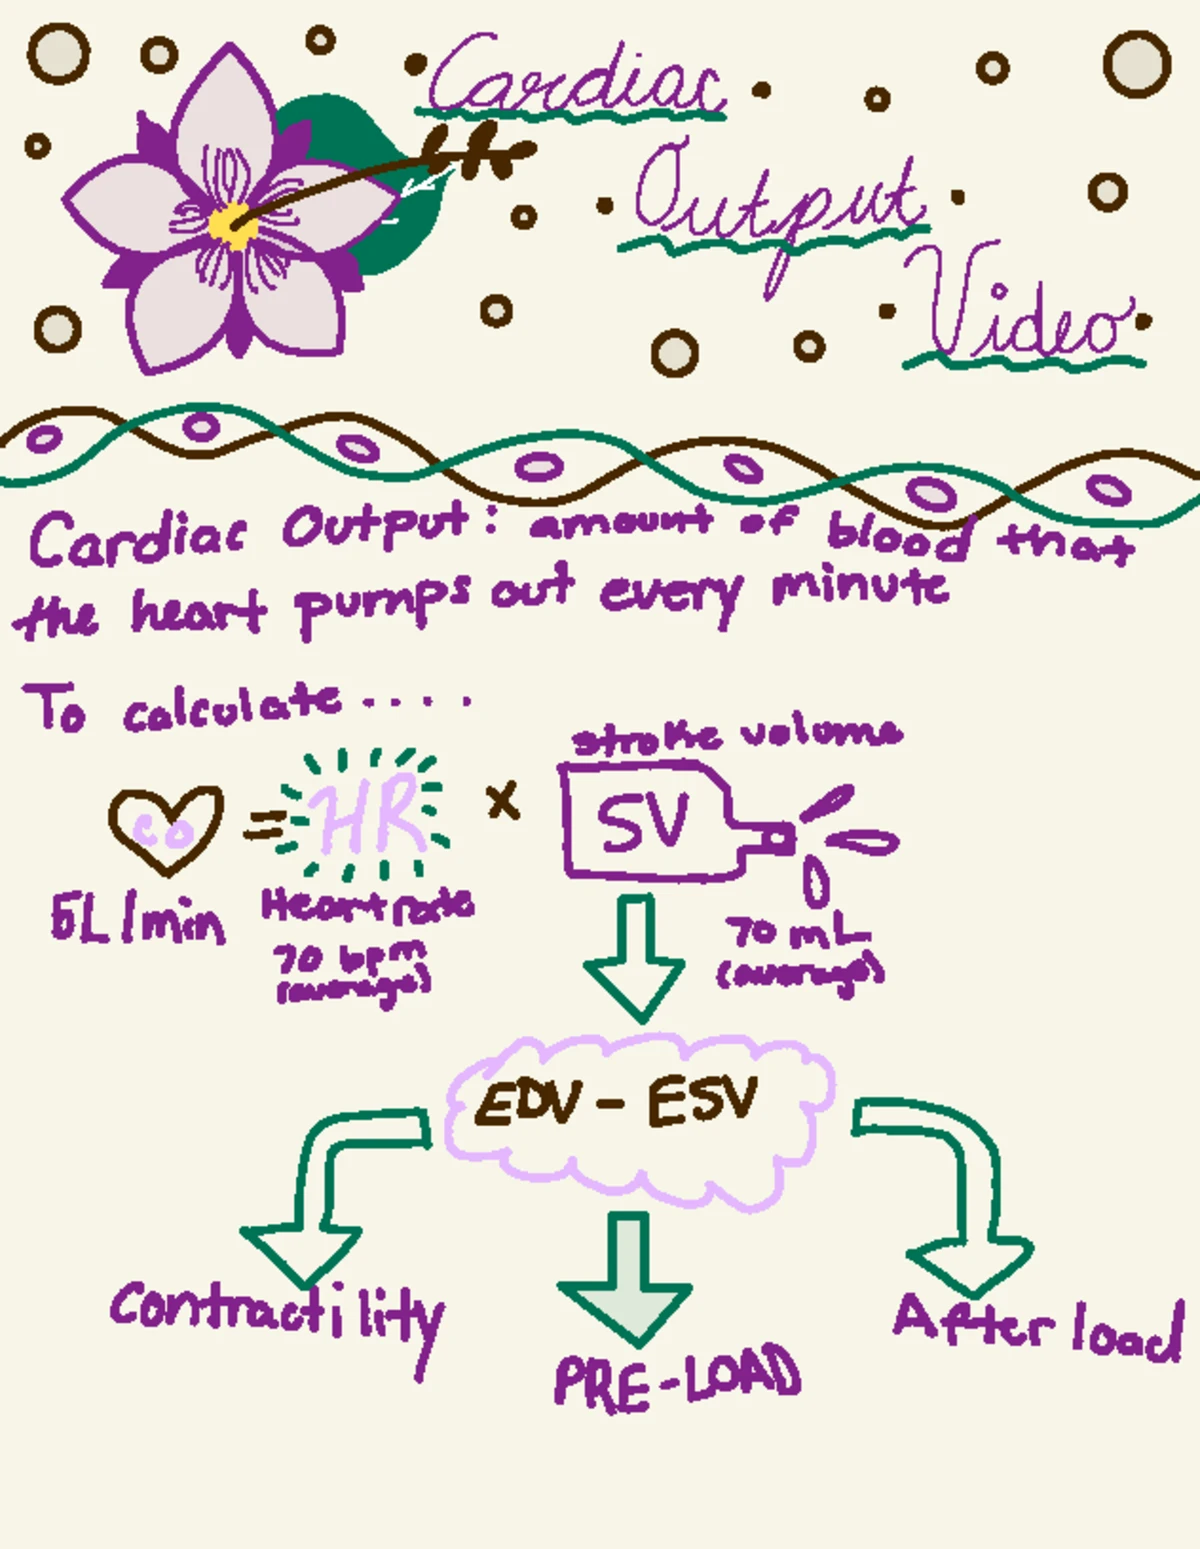 Cardiac
Output
Video
Cardiac Output: amount of blood that
the heart pumps out every minute
To calculate ....
stroke volume
CO = HR x SV
5L/min
Heart rate
70 bpm
(average)
70 mL
(average)
EDV - ESV
Contractility
PRE-LOAD
Afterload